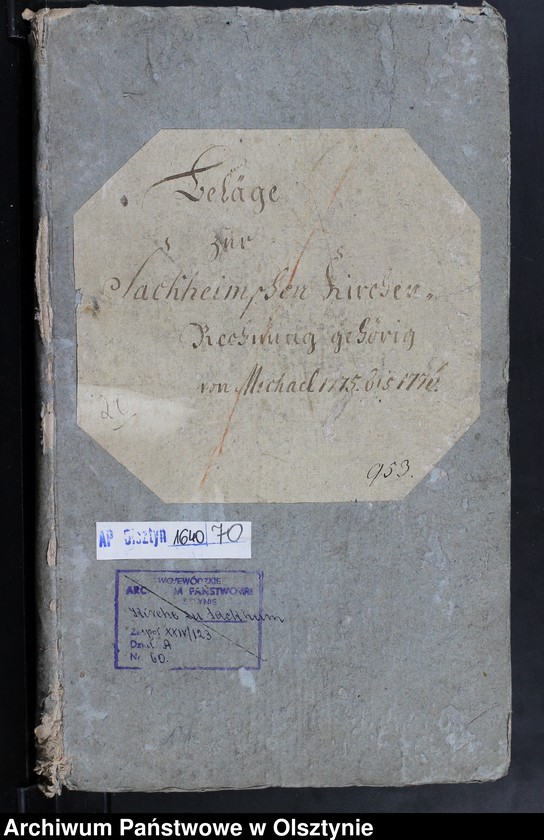 Beläge
zur
Sackheimschen Kirchen-
Rechnung gehörig
von Michael 1775. bis 1776.
21
953.
AP Olsztyn 1640 70
WOJEWÓDZKIE
ARCHIWUM PAŃSTWOWE
OLSZTYNIE
Kirche zu Sackheim
Zespół XXIV/123
Dział A
Nr. 60.
Archiwum Państwowe w Olsztynie